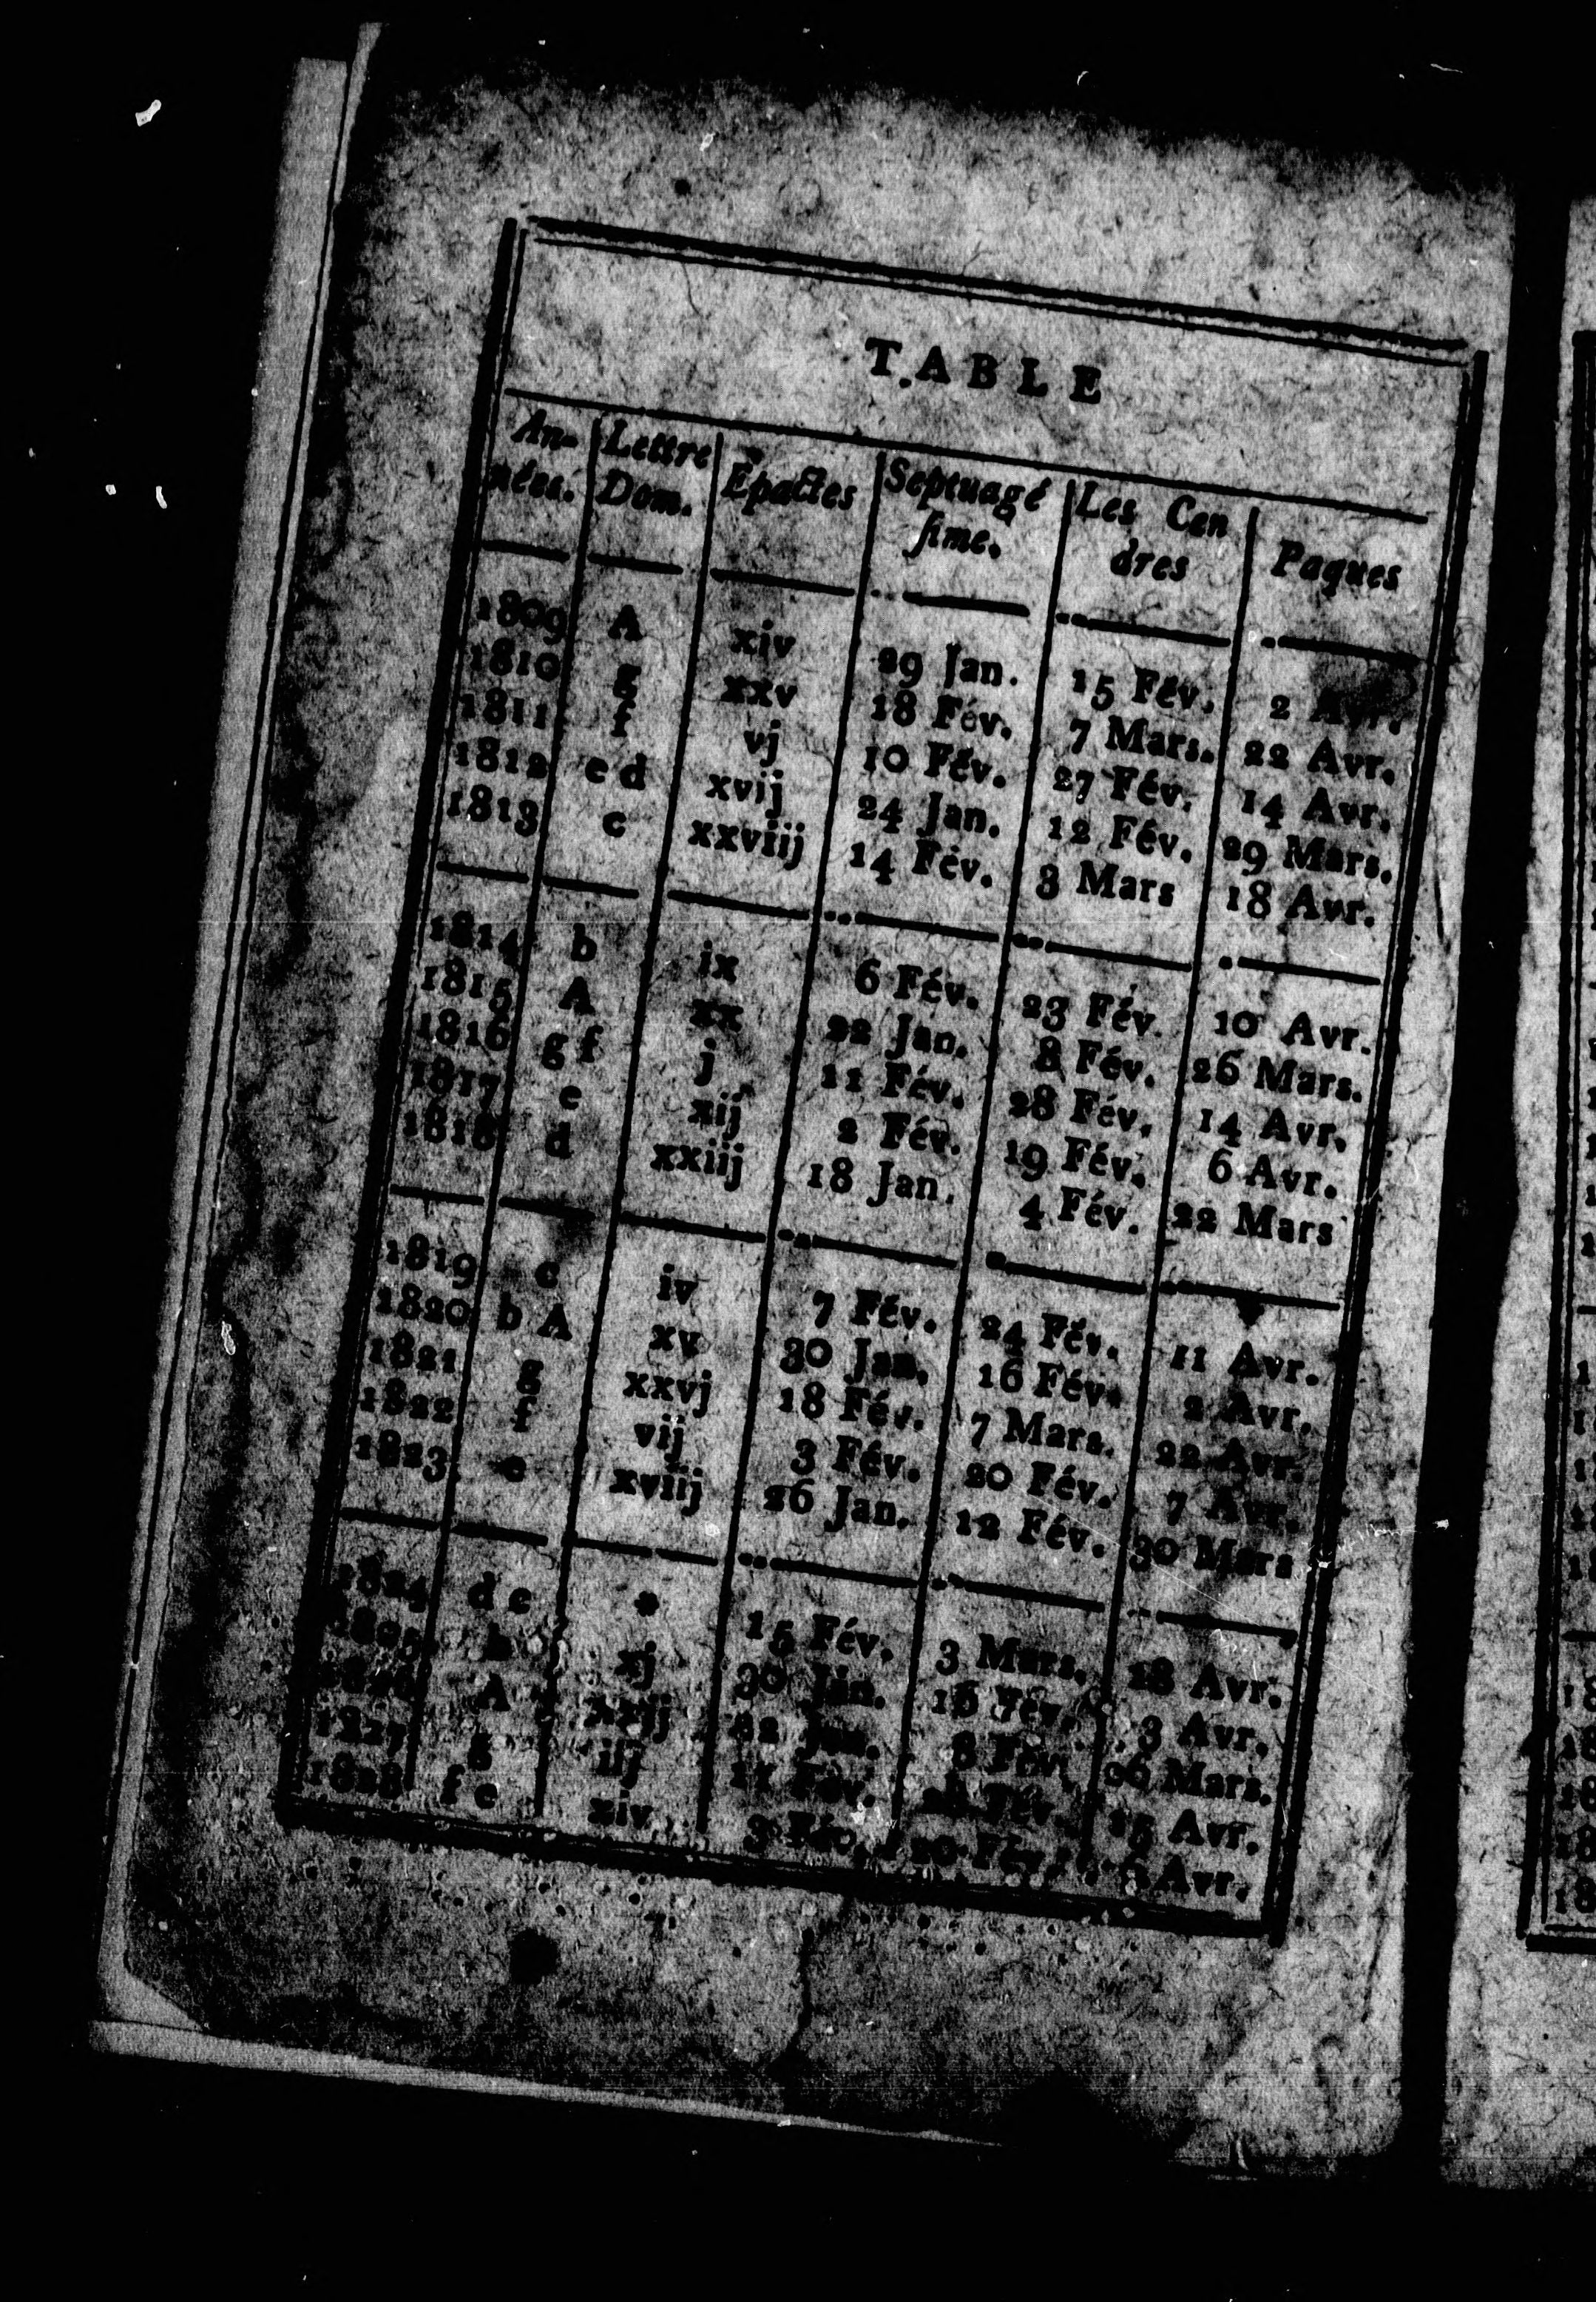 TABLE
An- Lettre Épactes Septuagé Les Cen Paques
nées. Dom. sime. dres
1809 A xiv 29 Jan. 15 Fév. 2 Avr.
1810 g xxv 18 Fév. 7 Mars. 22 Avr.
1811 f vj 10 Fév. 27 Fév. 14 Avr.
1812 e d xvij 24 Jan. 12 Fév. 29 Mars.
1813 c xxviij 14 Fév. 3 Mars 18 Avr.
1814 b ix 6 Fév. 23 Fév. 10 Avr.
1815 A xx 22 Jan. 8 Fév. 26 Mars.
1816 g f j 11 Fév. 28 Fév. 14 Avr.
1817 e xij 2 Fév. 19 Fév. 6 Avr.
1818 d xxiij 18 Jan. 4 Fév. 22 Mars
1819 c iv 7 Fév. 24 Fév. 11 Avr.
1820 b A xv 30 Jan. 16 Fév. 2 Avr.
1821 g xxvj 18 Fév. 7 Mars. 22 Avr.
1822 f vij 3 Fév. 20 Fév. 7 Avr.
1823 e xviij 26 Jan. 12 Fév. 30 Mars
1824 d c * 15 Fév. 3 Mars. 18 Avr.
b xj 30 Jan. 16 Fév. 3 Avr.
A xxij 22 Jan. 8 Fév. 26 Mars.
1827 g iij 11 Fév. 28 Fév. 15 Avr.
1828 f e xiv 3 Fév. 20 Fév. Avr.